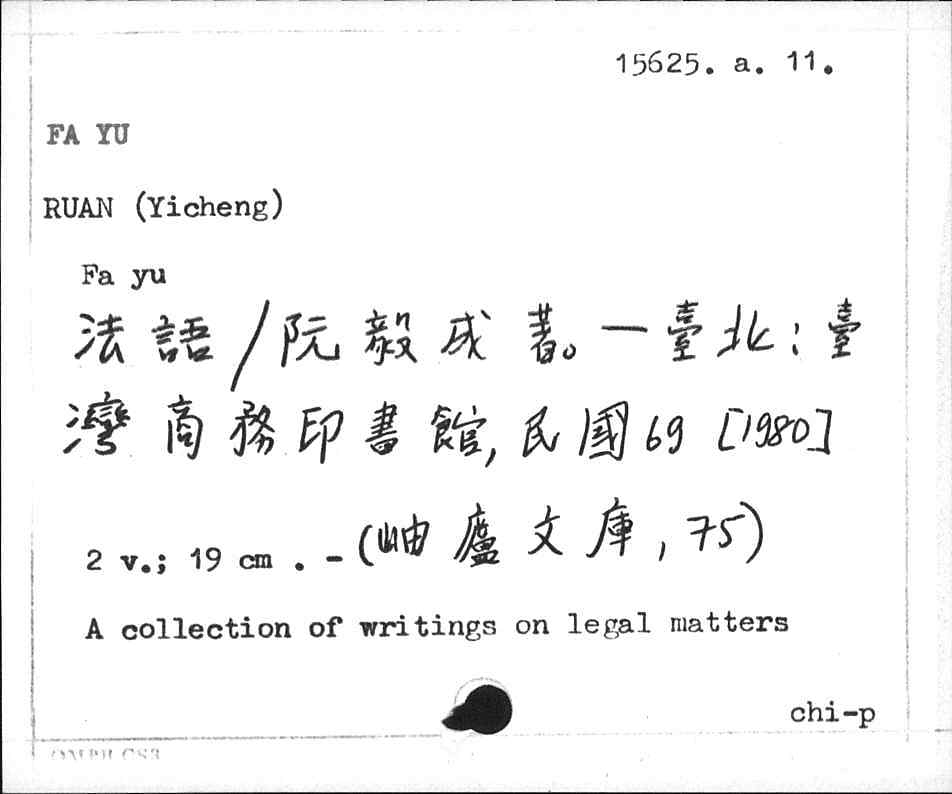 15625. a. 11.
FA YU
RUAN (Yicheng)
Fa yu
法語/阮毅成著。—臺北:臺
灣商務印書館,民國69 [1980]
2 v.; 19 cm . - (岫廬文庫, 75)
A collection of writings on legal matters
chi-p